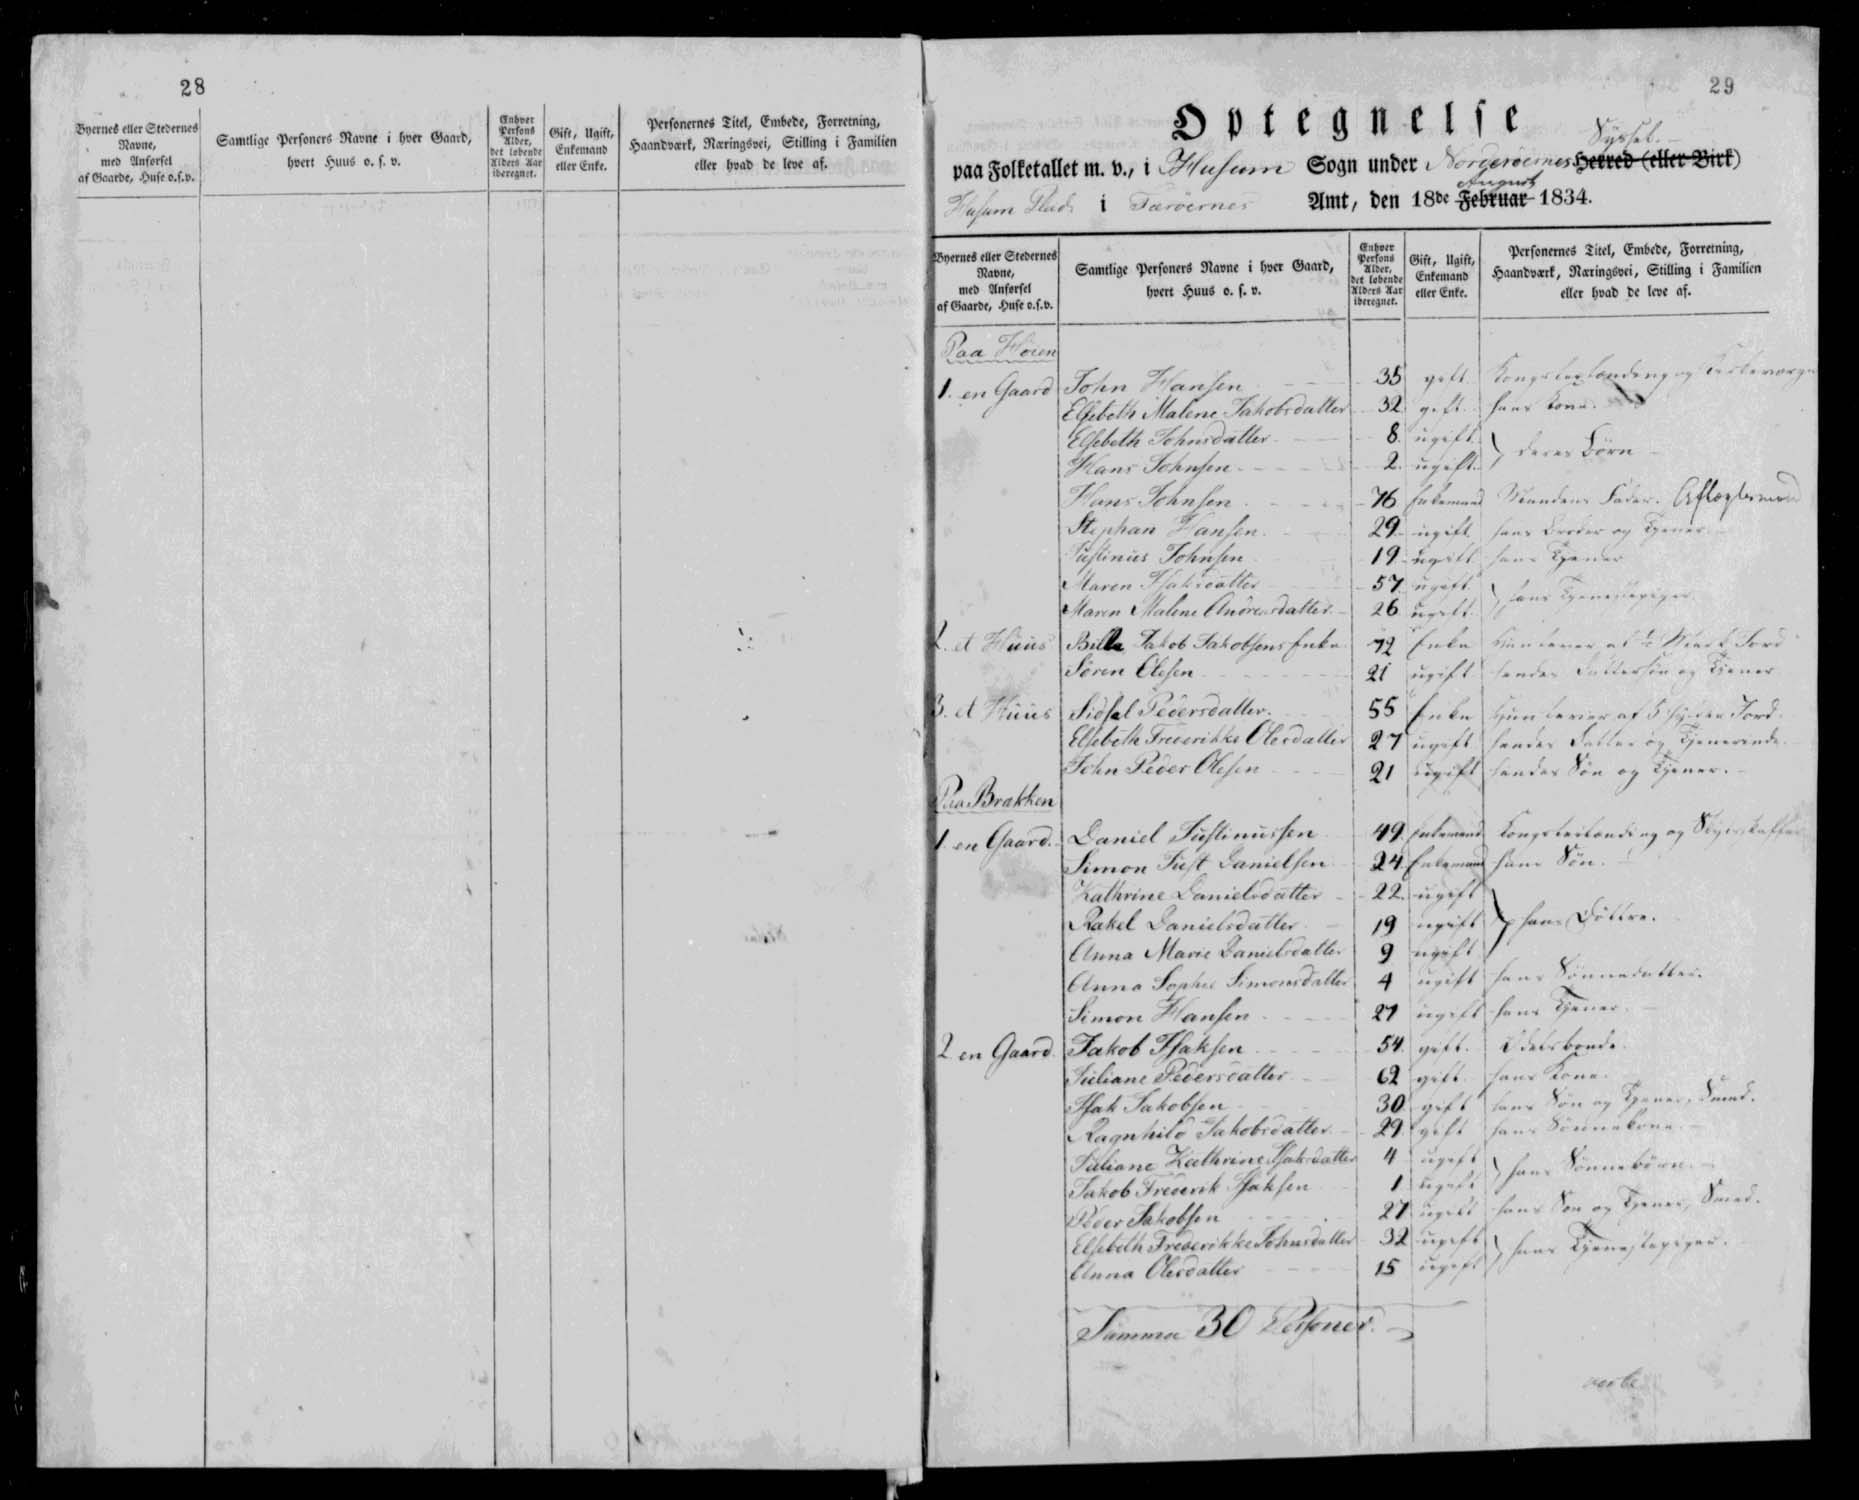 28
Byernes eller Stedernes
Navne,
med Anførsel
af Gaarde, Huse o.s.v.
Samtlige Personers Navne i hver Gaard,
hvert Huus o. s. v.
Enhver
Persons
Alder,
det løbende
Alders Aar
iberegnet.
Gift, Ugift,
Enkemand
eller Enke.
Personernes Titel, Embede, Forretning,
Haandværk, Næringsvei, Stilling i Familien
eller hvad de leve af.
29
Optegnelse
Syssel.
paa Folketallet m. v., i Husum Sogn under Norderøernes Herred (eller Birk)
August
Husum i Færøernes Amt, den 18de Februar 1834.
Byernes eller Stedernes
Navne,
med Anførsel
af Gaarde, Huse o.s.v.
Samtlige Personers Navne i hver Gaard,
hvert Huus o. s. v.
Enhver
Persons
Alder,
det løbende
Alders Aar
iberegnet.
Gift, Ugift,
Enkemand
eller Enke.
Personernes Titel, Embede, Forretning,
Haandværk, Næringsvei, Stilling i Familien
eller hvad de leve af.
Paa Høien
1. en Gaard John Hansen 35 gift
Elsebeth Malene Jakobsdatter 32 gift hans Kone.
Elsebeth Johnsdatter 8 ugift
Hans Johnsen 2 ugift } deres Børn
Hans Johnsen 76 Enkemand Mandens Fader. Aftægtsmand
Stephan Hansen 29 ugift hans Broder og Tjener
Justinus Johnsen 19 ugift hans Tjener
Maren Isaksdatter 57 ugift
Maren Malene Andreasdatter 26 ugift } hans Tjenestepiger
2. et Huus Bille Jakob Jakobsens Enke 72 Enke Jord
Søren Olesen 21 ugift hendes Dattersøn og Tjener
3. et Huus Sidsel Pedersdatter. 55 Enke af 5 Jord.
Elsebeth Frederikke Olesdatter 27 ugift hendes Datter og Tjenerinde.
John Peder Olesen 21 ugift hendes Søn og Tjener.
Paa Brækken
1. en Gaard. Daniel Justinussen 49 Enkemand og Skydsskaffer
Simon Just Danielsen 24 Enkemand hans Søn.
Kathrine Danielsdatter 22 ugift
Rakel Danielsdatter 19 ugift } hans Døttre.
Anna Marie Danielsdatter 9 ugift
Anna Sophie Simonsdatter 4 ugift hans Sønnedatter.
Simon Hansen 27 ugift hans Tjener.
2 en Gaard. Jakob Isaksen 54 gift. Odelsbonde.
Juliane Pedersdatter 62 gift hans Kone.
Isak Jakobsen 30 gift hans Søn og Tjener, Smed.
Ragnhild Jakobsdatter 29 gift hans Sønnekone.
Juliane Kathrine Isaksdatter 4 ugift
Jakob Frederik Isaksen 1 ugift } hans Sønnebørn.
Peder Jakobsen 27 ugift hans Søn og Tjener, Smed.
Elsebeth Frederikke Johnsdatter 32 ugift
Anna Olesdatter 15 ugift } hans Tjenestepiger.
Summa 30 Personer.